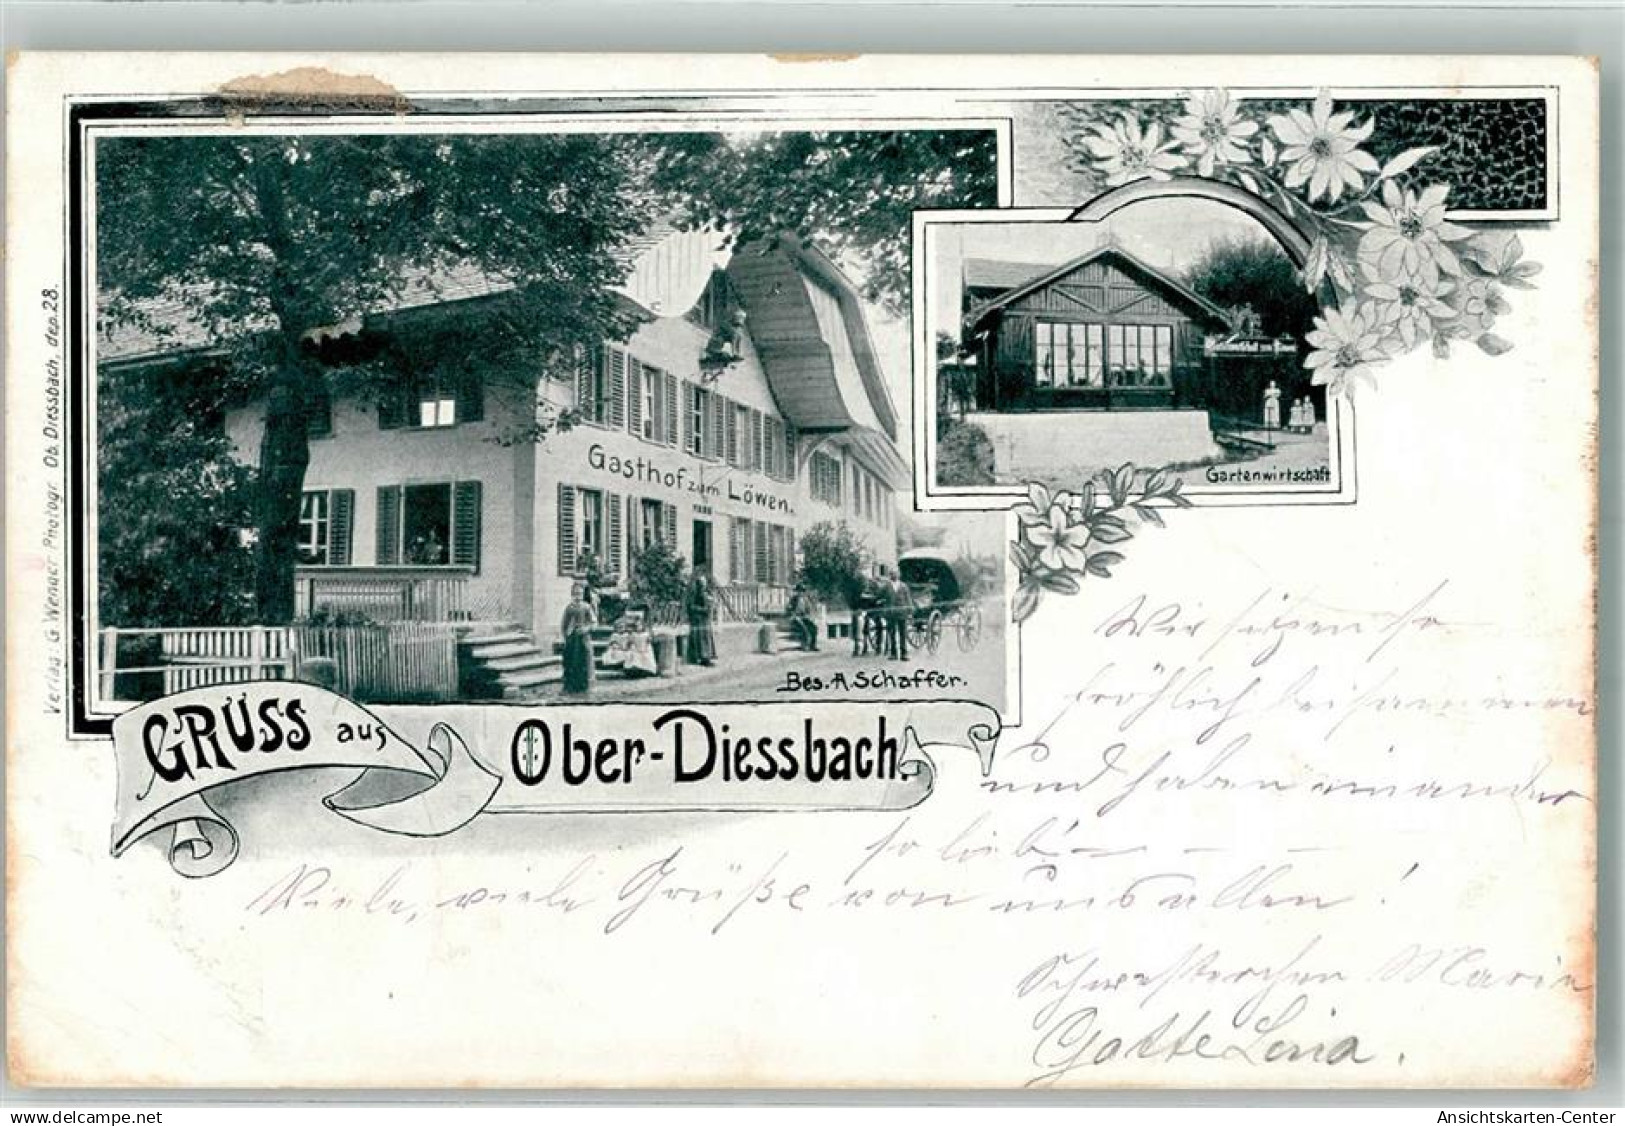 Verlag: G. Wenger Photogr. Ob. Diessbach, dep. 28.
Gasthof zum Löwen.
Bes. A. Schaffer.
Gartenwirtschaft
GRUSS aus Ober-Diessbach.
Wir sitzen so
fröhlich beisammen
und haben einander
so lieb! — — —
Viele, viele Grüße von uns allen!
Schwesterchen Marie
Gotte Lina.
Ansichtskarten-Center